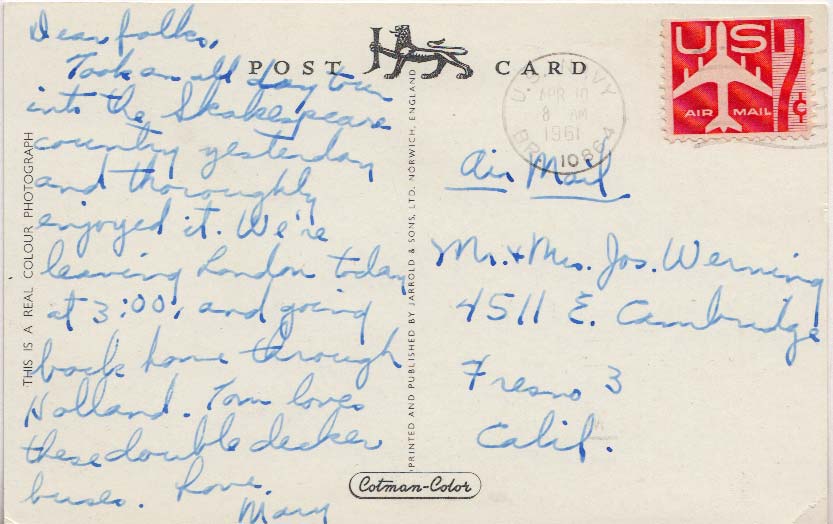 Dear folks,
Took an all day tour
into the Shakespeare
country yesterday
and thoroughly
enjoyed it. We're
leaving London today
at 3:00, and going
back home through
Holland. Tom loves
these double decker
buses. Love,
Mary
POST CARD
THIS IS A REAL COLOUR PHOTOGRAPH
PRINTED AND PUBLISHED BY JARROLD & SONS, LTD. NORWICH, ENGLAND
Cotman-Color
U.S. NAVY
APR 10
8 AM
1961
BR. 10864
US 7¢
AIR MAIL
Air Mail
Mr. & Mrs. Jos. Werning
4511 E. Cambridge
Fresno 3
Calif.